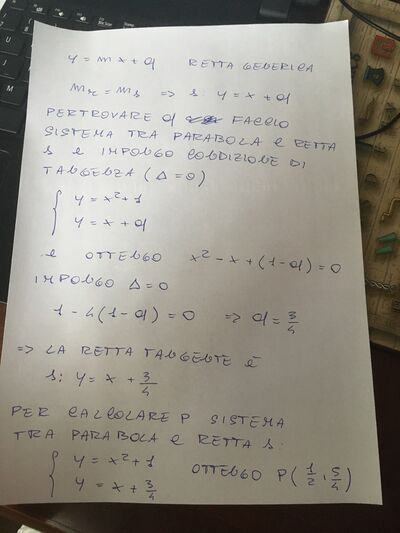 y = mx + q RETTA GENERICA
mr = ms => s: y = x + q
PER TROVARE q FACCIO
SISTEMA TRA PARABOLA E RETTA
s E IMPONGO CONDIZIONE DI
TANGENZA (Δ=0)
{ y = x²+1
y = x+q
E OTTENGO x² - x + (1-q) = 0
IMPONGO Δ=0
1 - 4(1-q) = 0 => q = 3/4
=> LA RETTA TANGENTE È
s: y = x + 3/4
PER CALCOLARE P SISTEMA
TRA PARABOLA E RETTA s:
{ y = x²+1
y = x + 3/4 OTTENGO P(1/2, 5/4)